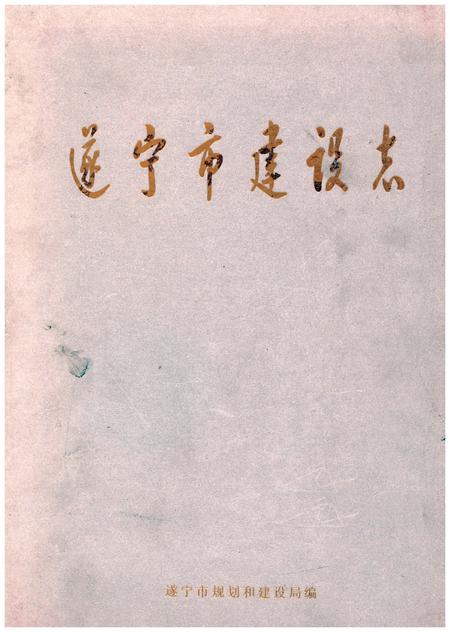 遂宁市建设志
遂宁市规划和建设局编